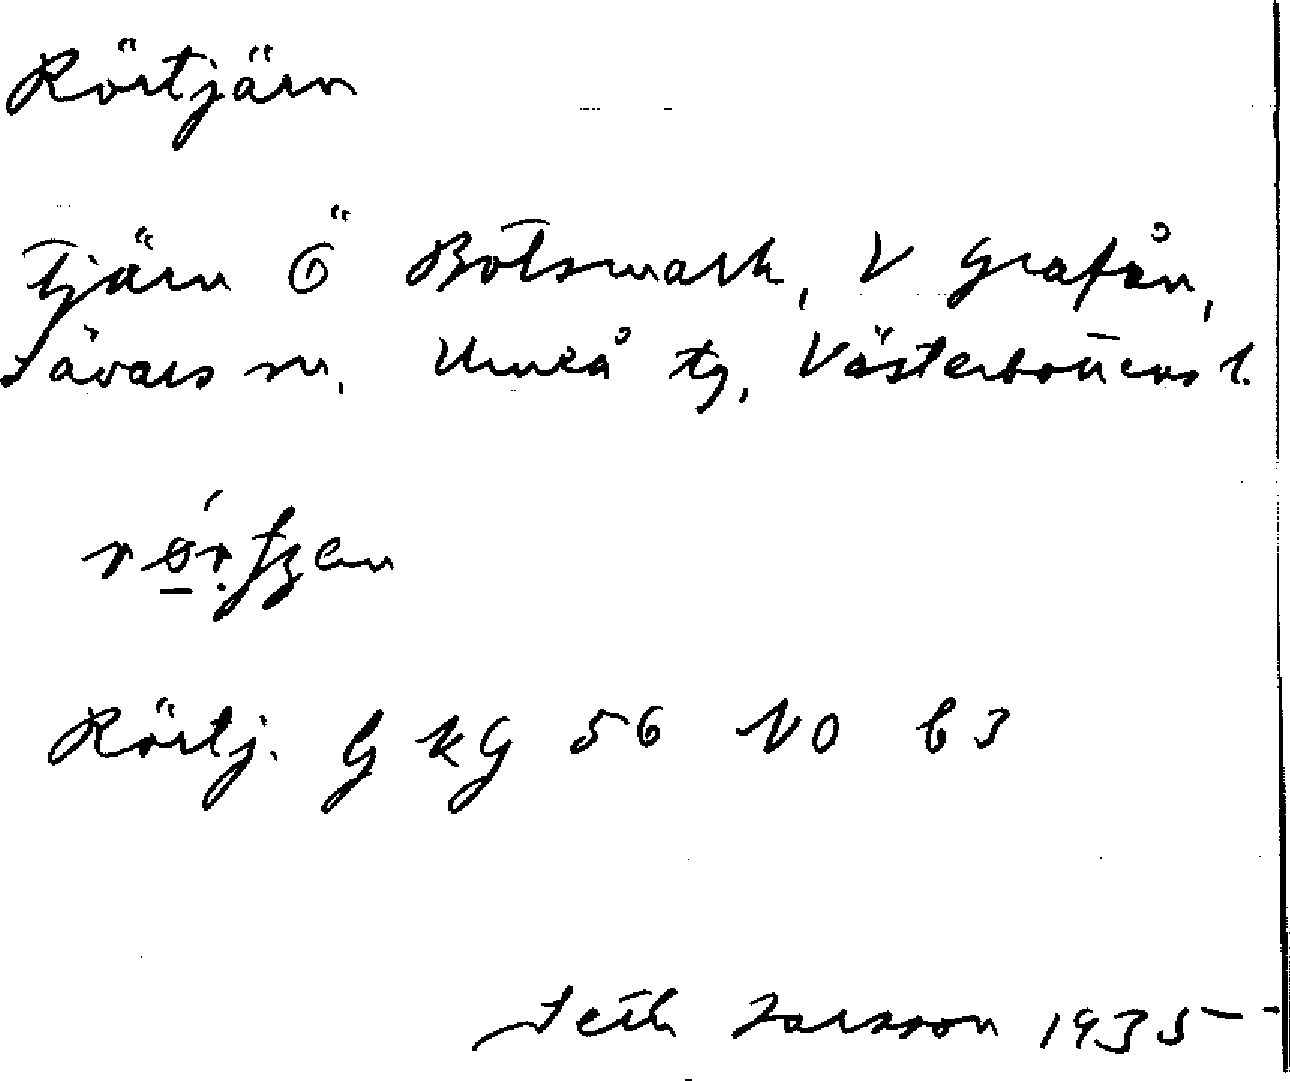 Rörtjärn
Tjärn Ö Botsmark, V Grafån,
Sävars sn, Umeå tg, Västerbottens l.
Rörtj. G K G 56 NO b3
Seth Larsson 1935